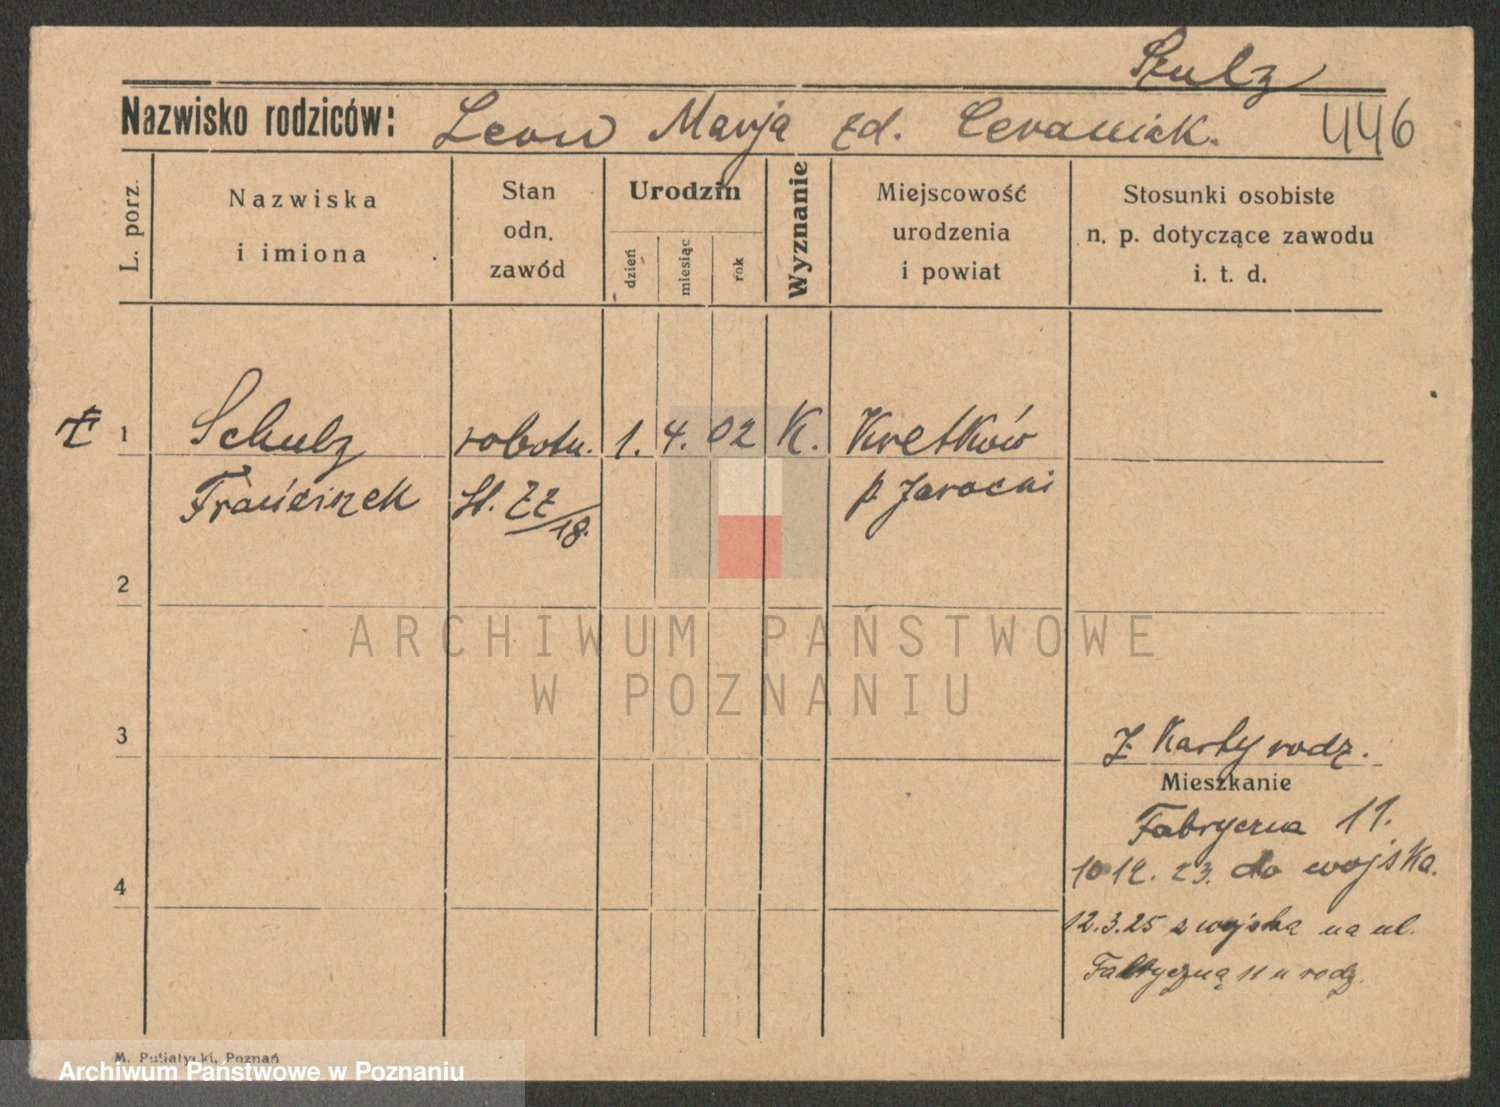 Szulz
Nazwisko rodziców: Leon Marja zd. Ceraniak. 446
L. porz.
Nazwiska
i imiona
Stan
odn.
zawód
Urodzin
dzień
miesiąc
rok
Wyznanie
Miejscowość
urodzenia
i powiat
Stosunki osobiste
n. p. dotyczące zawodu
i. t. d.
1 Schulz robotn. 1. 4. 02 K. Kretków
Franciszek p. Jarocki
18.
2
3
4
Z Karty rodz.
Mieszkanie
Fabryczna 11.
10 12. 23. do wojska.
12.3.25 z wojska na ul.
Fabryczną 11 u rodz.
M. Putiatycki, Poznań
ARCHIWUM PAŃSTWOWE
W POZNANIU
Archiwum Państwowe w Poznaniu